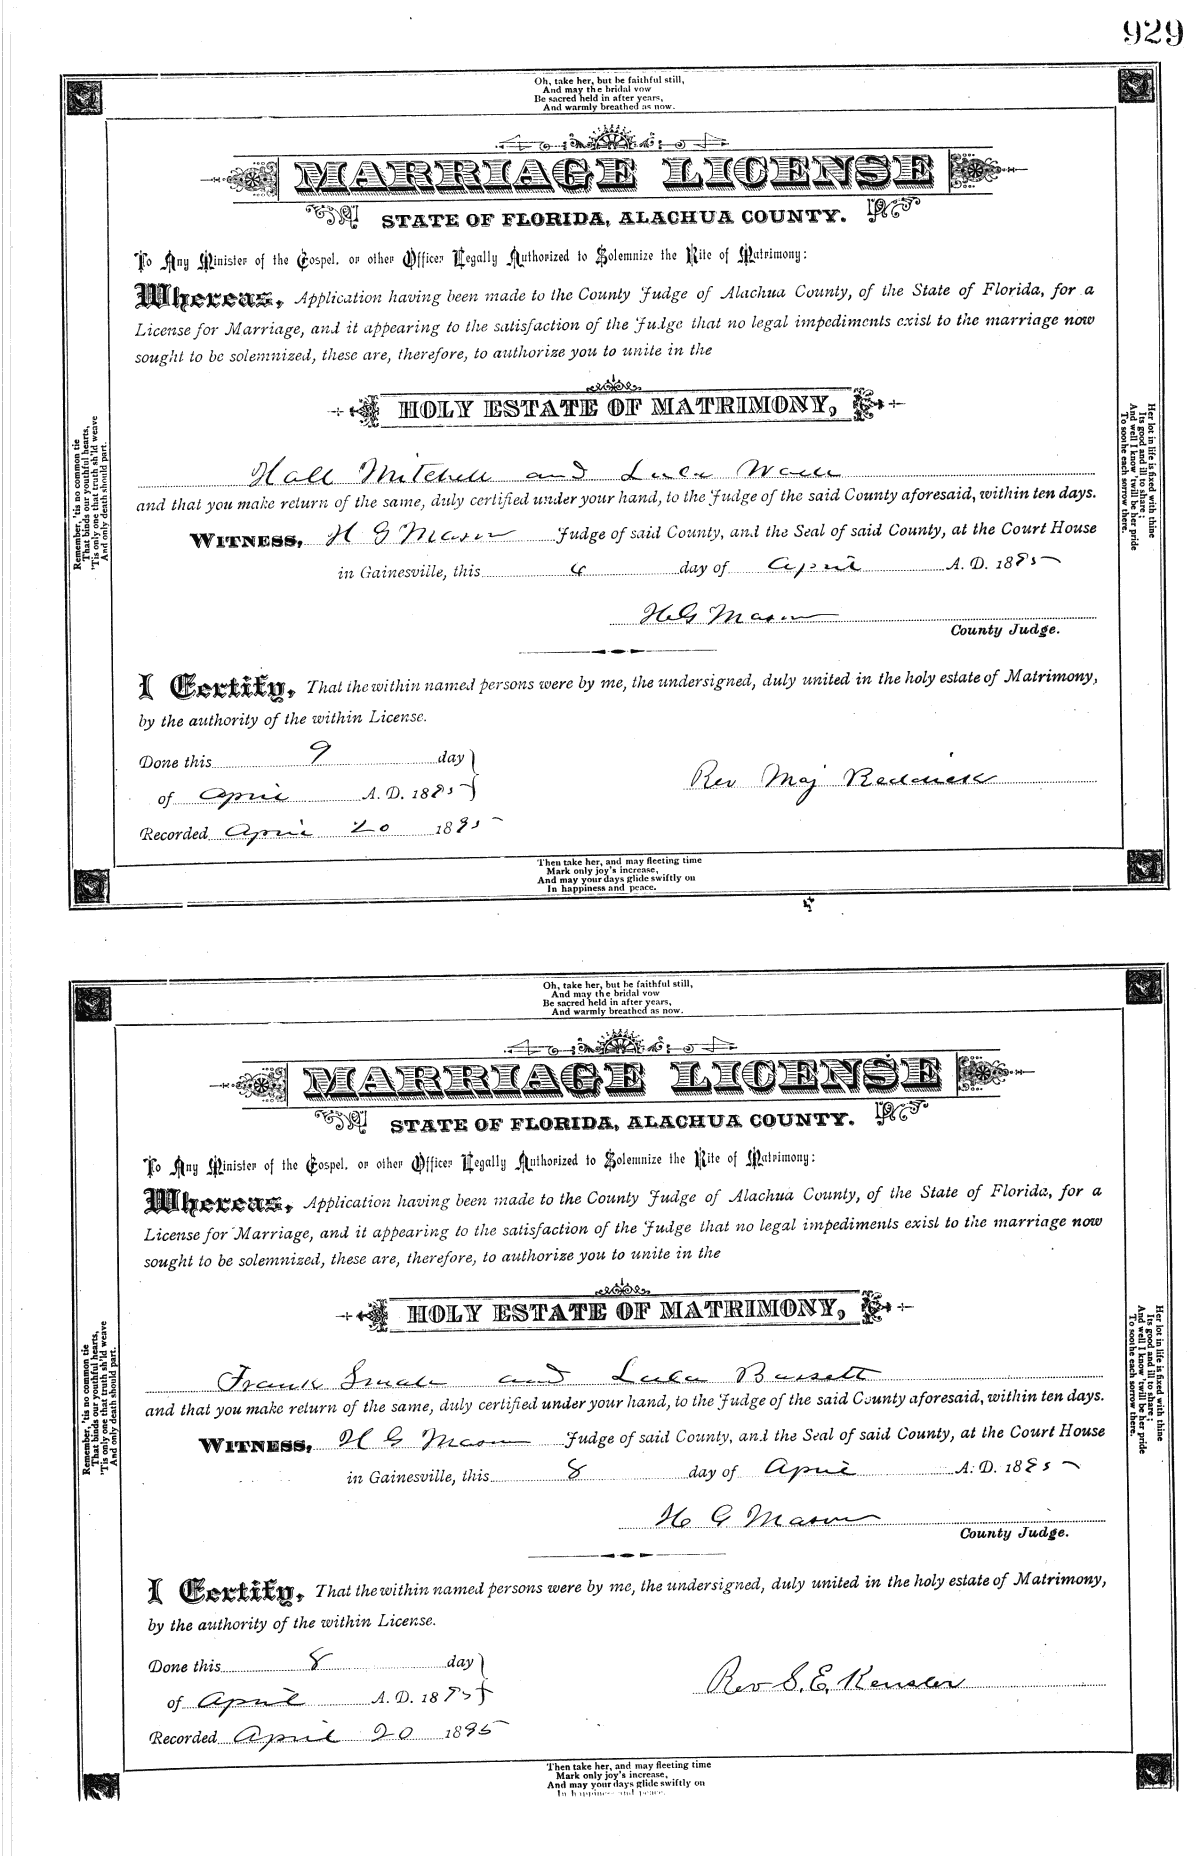 929
Oh, take her, but be faithful still,
And may the bridal vow
Be sacred held in after years,
And warmly breathed as now.
MARRIAGE LICENSE
STATE OF FLORIDA, ALACHUA COUNTY.
To Any Minister of the Gospel, or other Officer Legally Authorized to Solemnize the Rite of Matrimony:
Whereas, Application having been made to the County Judge of Alachua County, of the State of Florida, for a
License for Marriage, and it appearing to the satisfaction of the Judge that no legal impediments exist to the marriage now
sought to be solemnized, these are, therefore, to authorize you to unite in the
HOLY ESTATE OF MATRIMONY,
Hall Mitchell and Lula
and that you make return of the same, duly certified under your hand, to the Judge of the said County aforesaid, within ten days.
WITNESS, H G Mason Judge of said County, and the Seal of said County, at the Court House
in Gainesville, this 4 day of April A. D. 1895
H G Mason
County Judge.
I Certify, That the within named persons were by me, the undersigned, duly united in the holy estate of Matrimony,
by the authority of the within License.
Done this 9 day
of April A. D. 1895
Rev Maj Reddick
Recorded April 20 1895
Remember, 'tis no common tie
That binds our youthful hearts,
'Tis only one that truth sh'ld weave
And only death should part.
Her lot in life is fixed with thine
Its good and ill to share;
And well I know 'twill be her pride
To soothe each sorrow there.
Then take her, and may fleeting time
Mark only joy's increase,
And may your days glide swiftly on
In happiness and peace.
Oh, take her, but be faithful still,
And may the bridal vow
Be sacred held in after years,
And warmly breathed as now.
MARRIAGE LICENSE
STATE OF FLORIDA, ALACHUA COUNTY.
To Any Minister of the Gospel, or other Officer Legally Authorized to Solemnize the Rite of Matrimony:
Whereas, Application having been made to the County Judge of Alachua County, of the State of Florida, for a
License for Marriage, and it appearing to the satisfaction of the Judge that no legal impediments exist to the marriage now
sought to be solemnized, these are, therefore, to authorize you to unite in the
HOLY ESTATE OF MATRIMONY,
Frank and Lula Bassett
and that you make return of the same, duly certified under your hand, to the Judge of the said County aforesaid, within ten days.
WITNESS, H G Mason Judge of said County, and the Seal of said County, at the Court House
in Gainesville, this 8 day of April A. D. 1895
H G Mason
County Judge.
I Certify, That the within named persons were by me, the undersigned, duly united in the holy estate of Matrimony,
by the authority of the within License.
Done this 8 day
of April A. D. 1895
Rev S. E.
Recorded April 20 1895
Remember, 'tis no common tie
That binds our youthful hearts,
'Tis only one that truth sh'ld weave
And only death should part.
Her lot in life is fixed with thine
Its good and ill to share;
And well I know 'twill be her pride
To soothe each sorrow there.
Then take her, and may fleeting time
Mark only joy's increase,
And may your days glide swiftly on
In happiness and peace.